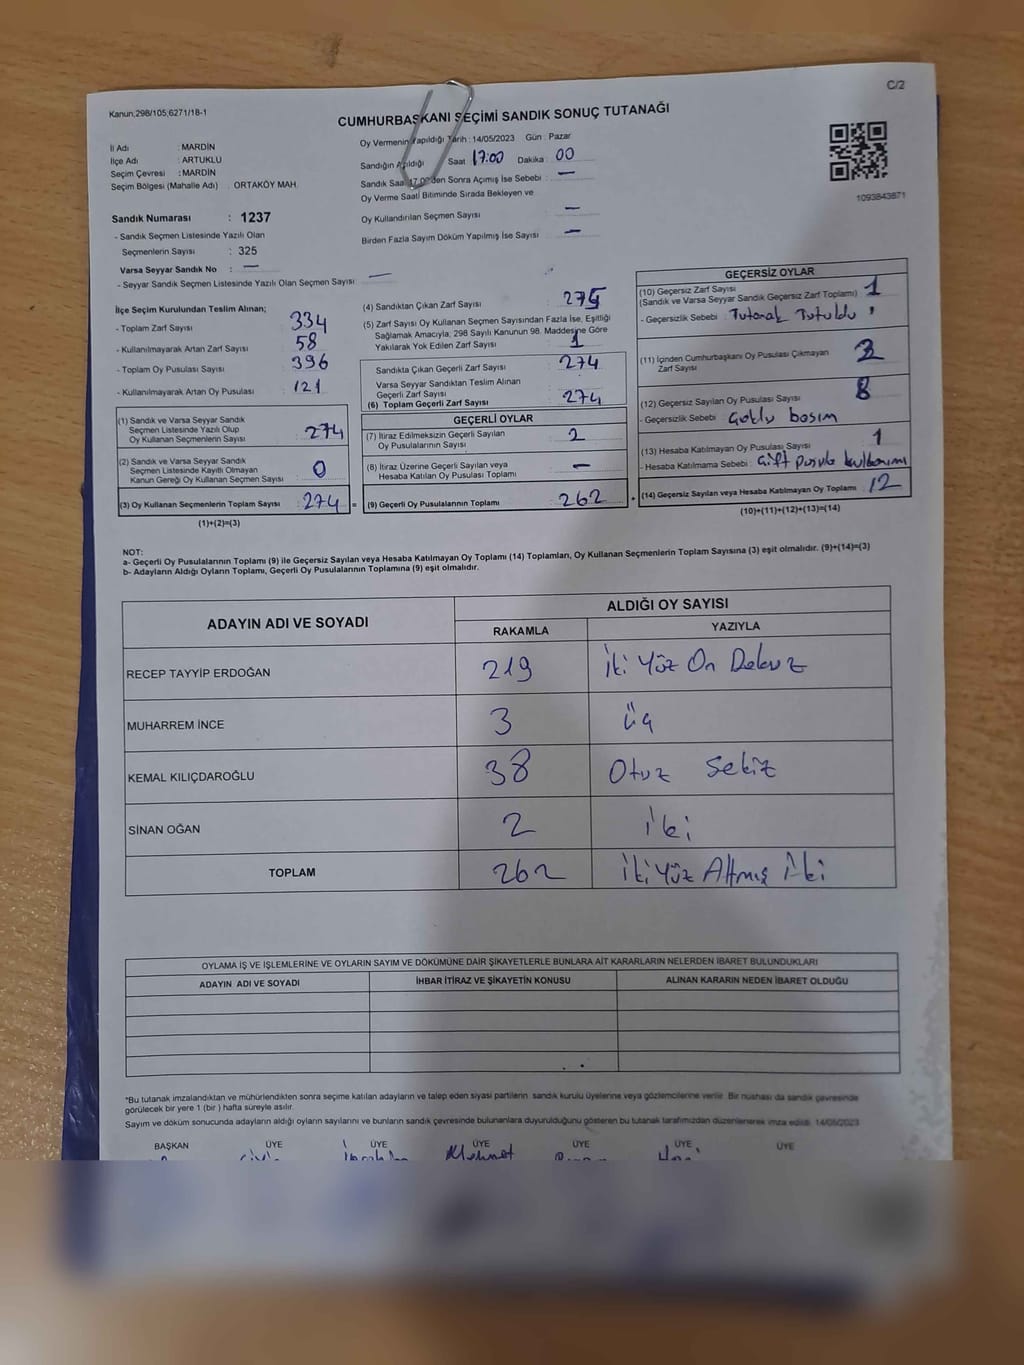 C/2
Kanun;298/105;6271/18-1
CUMHURBAŞKANI SEÇİMİ SANDIK SONUÇ TUTANAĞI
İl Adı : MARDİN
İlçe Adı : ARTUKLU
Seçim Çevresi : MARDİN
Seçim Bölgesi (Mahalle Adı) : ORTAKÖY MAH.
Oy Vermenin Yapıldığı Tarih : 14/05/2023 Gün : Pazar
Sandığın Açıldığı Saat 17:00 Dakika : 00
Sandık Saat 17.00'den Sonra Açımış İse Sebebi : —
Oy Verme Saati Bitiminde Sırada Bekleyen ve
Oy Kullandırılan Seçmen Sayısı : —
Birden Fazla Sayım Döküm Yapılmış İse Sayısı : —
1093843871
Sandık Numarası : 1237
- Sandık Seçmen Listesinde Yazılı Olan
Seçmenlerin Sayısı : 325
Varsa Seyyar Sandık No : —
- Seyyar Sandık Seçmen Listesinde Yazılı Olan Seçmen Sayısı: —
İlçe Seçim Kurulundan Teslim Alınan;
- Toplam Zarf Sayısı : 334
- Kullanılmayarak Artan Zarf Sayısı : 58
- Toplam Oy Pusulası Sayısı : 396
- Kullanılmayarak Artan Oy Pusulası : 121
(1) Sandık ve Varsa Seyyar Sandık
Seçmen Listesinde Yazılı Olup
Oy Kullanan Seçmenlerin Sayısı : 274
(2) Sandık ve Varsa Seyyar Sandık
Seçmen Listesinde Kayıtlı Olmayan
Kanun Gereği Oy Kullanan Seçmen Sayısı : 0
(3) Oy Kullanan Seçmenlerin Toplam Sayısı : 274 =
(1)+(2)=(3)
(4) Sandıktan Çıkan Zarf Sayısı : 275
(5) Zarf Sayısı Oy Kullanan Seçmen Sayısından Fazla İse, Eşitliği
Sağlamak Amacıyla, 298 Sayılı Kanunun 98. Maddesine Göre
Yakılarak Yok Edilen Zarf Sayısı : 1
Sandıkta Çıkan Geçerli Zarf Sayısı : 274
Varsa Seyyar Sandıktan Teslim Alınan
Geçerli Zarf Sayısı
(6) Toplam Geçerli Zarf Sayısı : 274
GEÇERLİ OYLAR
(7) İtiraz Edilmeksizin Geçerli Sayılan
Oy Pusulalarının Sayısı :
(8) İtiraz Üzerine Geçerli Sayılan veya
Hesaba Katılan Oy Pusulası Toplamı : —
(9) Geçerli Oy Pusulalarının Toplamı : 262 +
GEÇERSİZ OYLAR
(10) Geçersiz Zarf Sayısı : 1
(Sandık ve Varsa Seyyar Sandık Geçersiz Zarf Toplamı)
- Geçersizlik Sebebi : Tutanak Tutuldu
(11) İçinden Cumhurbaşkanı Oy Pusulası Çıkmayan
Zarf Sayısı :
(12) Geçersiz Sayılan Oy Pusulası Sayısı : 8
- Geçersizlik Sebebi : Çoklu basım
(13) Hesaba Katılmayan Oy Pusulası Sayısı : 1
- Hesaba Katılmama Sebebi : Çift pusula kullanımı
(14) Geçersiz Sayılan veya Hesaba Katılmayan Oy Toplamı : 12
(10)+(11)+(12)+(13)=(14)
NOT:
a- Geçerli Oy Pusulalarının Toplamı (9) ile Geçersiz Sayılan veya Hesaba Katılmayan Oy Toplamı (14) Toplamları, Oy Kullanan Seçmenlerin Toplam Sayısına (3) eşit olmalıdır. (9)+(14)=(3)
b- Adayların Aldığı Oyların Toplamı, Geçerli Oy Pusulalarının Toplamına (9) eşit olmalıdır.
ADAYIN ADI VE SOYADI ALDIĞI OY SAYISI
RAKAMLA YAZIYLA
RECEP TAYYİP ERDOĞAN 219 İki Yüz On Dokuz
MUHARREM İNCE 3 Üç
KEMAL KILIÇDAROĞLU 38 Otuz Sekiz
SİNAN OĞAN 2 İki
TOPLAM 262 İki Yüz Altmış İki
OYLAMA İŞ VE İŞLEMLERİNE VE OYLARIN SAYIM VE DÖKÜMÜNE DAİR ŞİKAYETLERLE BUNLARA AİT KARARLARIN NELERDEN İBARET BULUNDUKLARI
ADAYIN ADI VE SOYADI İHBAR İTİRAZ VE ŞİKAYETİN KONUSU ALINAN KARARIN NEDEN İBARET OLDUĞU
*Bu tutanak imzalandıktan ve mühürlendikten sonra seçime katılan adayların ve talep eden siyasi partilerin sandık kurulu üyelerine veya gözlemcilerine verilir. Bir nüshası da sandık çevresinde
görülecek bir yere 1 (bir ) hafta süreyle asılır.
Sayım ve döküm sonucunda adayların aldığı oyların sayılarını ve bunların sandık çevresinde bulunanlara duyurulduğunu gösteren bu tutanak tarafımızdan düzenlenerek imza edildi. 14/05/2023
BAŞKAN ÜYE ÜYE ÜYE ÜYE ÜYE ÜYE
Mehmet